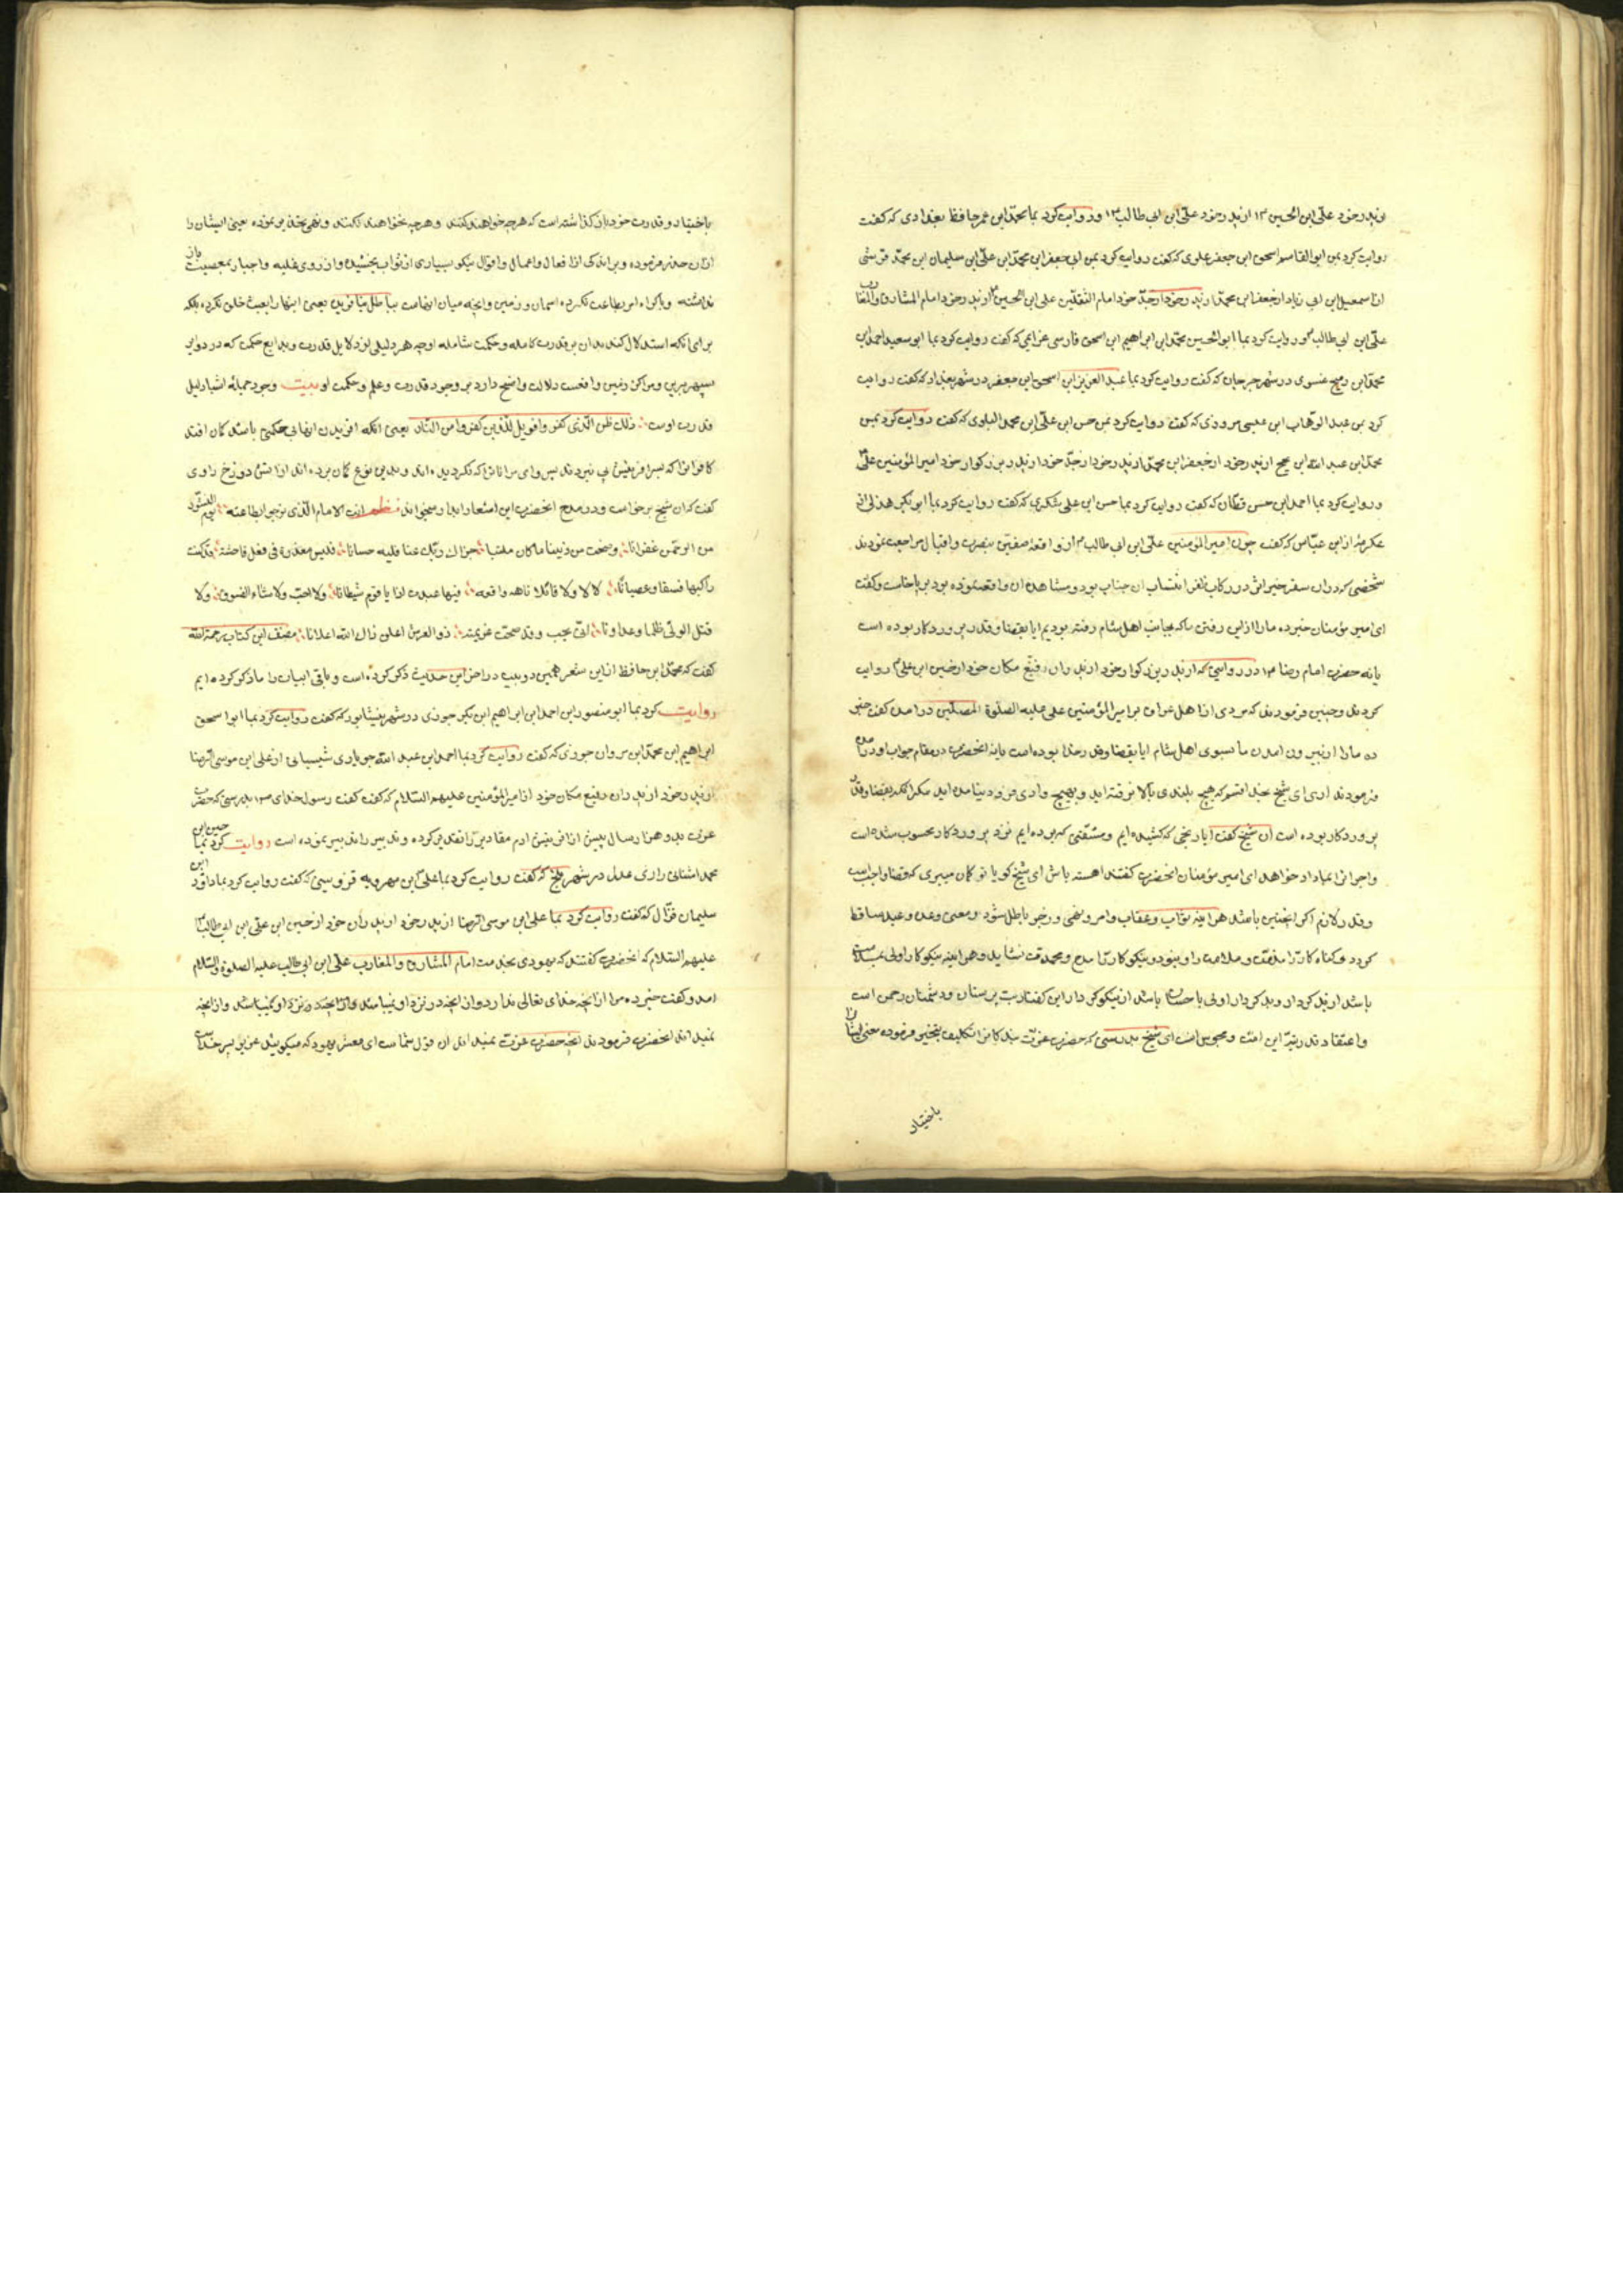 از پدر خود علی ابن الحسین ۴۳ از پدر خود علی ابن ابی طالب ۴۳ و روایت کرد بما محمد ابن عمر حافظ بغدادی که گفت
روایت کرد بمن ابوالقاسم اسحق ابن جعفر علوی که گفت روایت کرد بمن ابی جعفر ابن محمد ابن علی ابن سلیمان ابن محمد قرشی
از اسمعیل ابن ابی زیاد از جعفر ابن محمد از پدر خود از جد خود امام الثقلین علی ابن الحسین از پدر خود امام المشارق والمغارب
علی ابن ابی طالب و روایت کرد بما ابوالحسین محمد ابن ابراهیم ابن اسحق فارسی عزایمی که گفت روایت کرد بما ابو سعید احمد ابن
محمد ابن رمیح نسوی در شهر جرجان که گفت روایت کرد بما عبد العزیز ابن اسحق ابن جعفر در شهر بغداد که گفت روایت
کرد بمن عبد الوهاب ابن عیسی مروزی که گفت روایت کرد بمن حسن ابن علی ابن محمد البلوی که گفت روایت کرد بمن
محمد ابن عبد الله ابن نجیح از پدر خود از جعفر ابن محمد از پدر خود از جد خود از پدر بزرکوار خود امیر المؤمنین علی
و روایت کرد بما احمد ابن حسن قطان که گفت روایت کرد بما حسن ابن علی شکری که گفت روایت کرد بما ابو بکر هذلی از
عکرمه از ابن عباس که گفت چون امیر المؤمنین علی ابن ابی طالب ۴ از واقعه صفین بنصرت و اقبال مراجعت نمودند
شخصی که در ان سفر خیر اثر در رکاب ظفر انتساب ان جناب بود و مشاهده ان واقعه نموده بود بر پا خاست و گفت
ای امیر مؤمنان خبر ده ما را از این رفتن ما که بجانب اهل شام رفته بودیم ایا بقضا و قدر پروردکار بوده است
یا نه حضرت امام رضا ۴۳ در روایتی که از پدر بزرکوار خود از پدران رفیع مکان خود از حسین ابن علی روایت
کردند چنین فرمودند که مردی از اهل عراق بر امیر المؤمنین علی علیه الصلوة المصلین در امد گفت خبر
ده ما را از بیرون امدن ما بسوی اهل شام ایا بقضا و قدر خدا بوده است یا نه انحضرت در مقام جواب در امده
فرمودند اری ای شیخ بخدا قسم که هیچ بلندی بالا نرفته اید و بهیچ وادی فرود نیامده اید مکر انکه بقضا و قدر
پروردکار بوده است ان شیخ گفت ایا رنجی که کشیده ایم و مشقتی که برده ایم نزد پروردکار محسوب شده است
و اجر انرا بما داد خواهد ای امیر مؤمنان انحضرت گفتند اهسته باش ای شیخ کویا تو کمان میبری که قضا واجب است
و قدر لازم اکر اینچنین باشد هر اینه ثواب و عقاب و امر و نهی و زجر باطل شود و معنی وعد و وعید ساقط
کردد و کناه کار را مذمت و ملامت روا نبود و نیکو کار را مدح و محمدت نشاید و هر اینه نیکو کار اولی بمذمت
باشد از بد کردار و بد کردار اولی باحسان باشد از نیکو کردار این گفتار بت پرستان و دشمنان رحمن است
و اعتقاد قدریه این امت و مجوس است ای شیخ بدرستی که حضرت عزت بندکان را تکلیف بتخییر فرموده یعنی ایشان را
باختیار
باختیار و قدرت خود باز کذاشته است که هر چه خواهند کنند و هر چه نخواهند نکنند و نهی بتحذیر نموده یعنی ایشان را
از ان حذر فرموده و بر اندکی از افعال و اعمال و اقوال نیکو بسیاری از ثواب بخشیده و از روی غلبه و اجبار بمعصیت باز
نداشته و باکراه امر بطاعت نکرده اسمان و زمین و انچه میان انهاست بباطل نیافریده یعنی اینها را بعبث خلق نکرده بلکه
برای انکه استدلال کنند بدان بر قدرت کامله و حکمت شامله او چه هر دلیلی از دلایل قدرت و بدایع حکمت که در دوایر
سپهر برین و مراکز زمین واقعست دلالت واضح دارد بر وجود قدرت و علم و حکمت او بیت وجود جمله اشیا دلیل
قدرت اوست ذلک ظن الذین کفروا فویل للذین کفروا من النار یعنی انکه افریدن انها بی حکمتی باشد کمان افتد
کافرانرا که بسر افرینش پی نبردند پس وای مر انانرا که نکرویده اند و بدین نوع کمان برده اند از اتش دوزخ راوی
گفت که ان شیخ برخواست و در مدح انحضرت این اشعار ابدار میخواند نظم انت الامام الذی نرجوا بطاعته یوم النشور
من الرحمن غفرانا اوضحت من دیننا ما کان ملتبسا جزاک ربک عنا فیه احسانا فلیس معذرة فی فعل فاحشة قد کنت
راکبها فسقا و عصیانا لا لا ولا قائلا ناهیه واقعه فیها عبدت اذا یا قوم شیطانا ولا احب ولا شاء الفسوق ولا
قتل الولی ظلما و عداونا انی یحب وقد صحت عزیمته ذو العرش اعلن ذاک الله اعلانا مصنف این کتاب رحمه الله
گفت که محمد ابن حافظ از این شعر همین دو بیت در اخر این حدیث ذکر کرده است و باقی ابیات را ما ذکر کرده ایم
روایت کرد بما ابو منصور ابن احمد ابن ابراهیم ابن بکر جوزی در شهر نیشابور که گفت روایت کرد بما ابو اسحق
ابراهیم ابن محمد ابن مروان جوزی که گفت روایت کرد بما احمد ابن عبد الله جویباری شیبانی از علی ابن موسی الرضا
از پدر خود از پدران رفیع مکان خود از امیر المؤمنین علیهم السلام که گفت گفت رسول خدای ۴۳ بدرستی که حضرت
عزت بدو هزار سال پیش از افرینش ادم مقادیر را تقدیر کرده و تدبیر را تدبیر نموده است روایت کرد بما حسین ابن
محمد اشنانی رازی عدل در شهر بلخ که گفت روایت کرد بما علی ابن مهرویه قزوینی که گفت روایت کرد بما داود ابن
سلیمان غزال که گفت روایت کرد بما علی ابن موسی الرضا از پدر خود از پدران خود از حسین ابن علی ابن ابی طالب
علیهم السلام که انحضرت گفتند که یهودی بخدمت امام المشارق والمغارب علی ابن ابی طالب علیه الصلوة والسلام
امد و گفت خبر ده مرا از انچه خدای تعالی ندارد و از انچه در نزد او نیباشد و از انچه در نزد او نمیباشد و از انچه
نمیداند انحضرت فرمودند انچه حضرت عزت نمیداند ان قول شماست ای معشر یهود که میکوئید عزیر پسر خداست